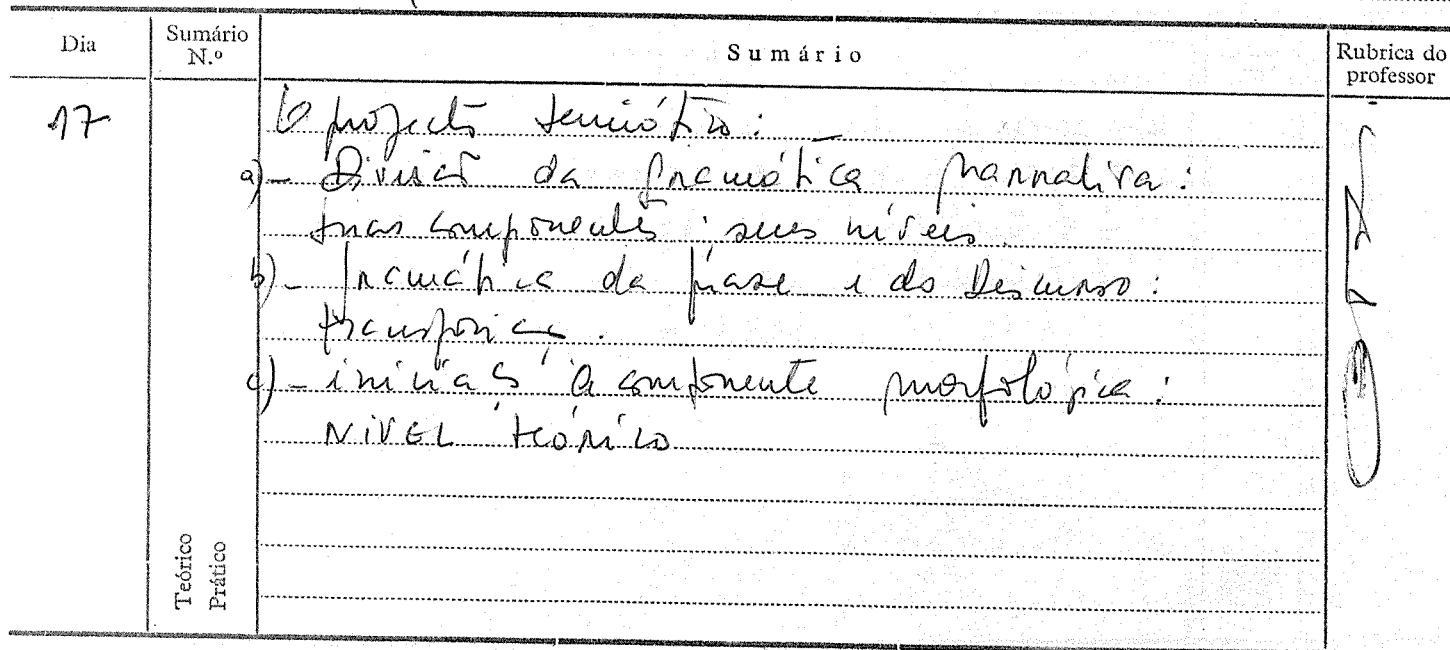 Dia
Sumário N.º
Sumário
Rubrica do professor
17
O projecto semiótico: –
a) – Divisão da gramática narrativa:
suas componentes; seus níveis.
b) – gramática da frase e do Discurso:
c) – iniciação à componente morfológica:
NIVEL teórico
Teórico
Prático